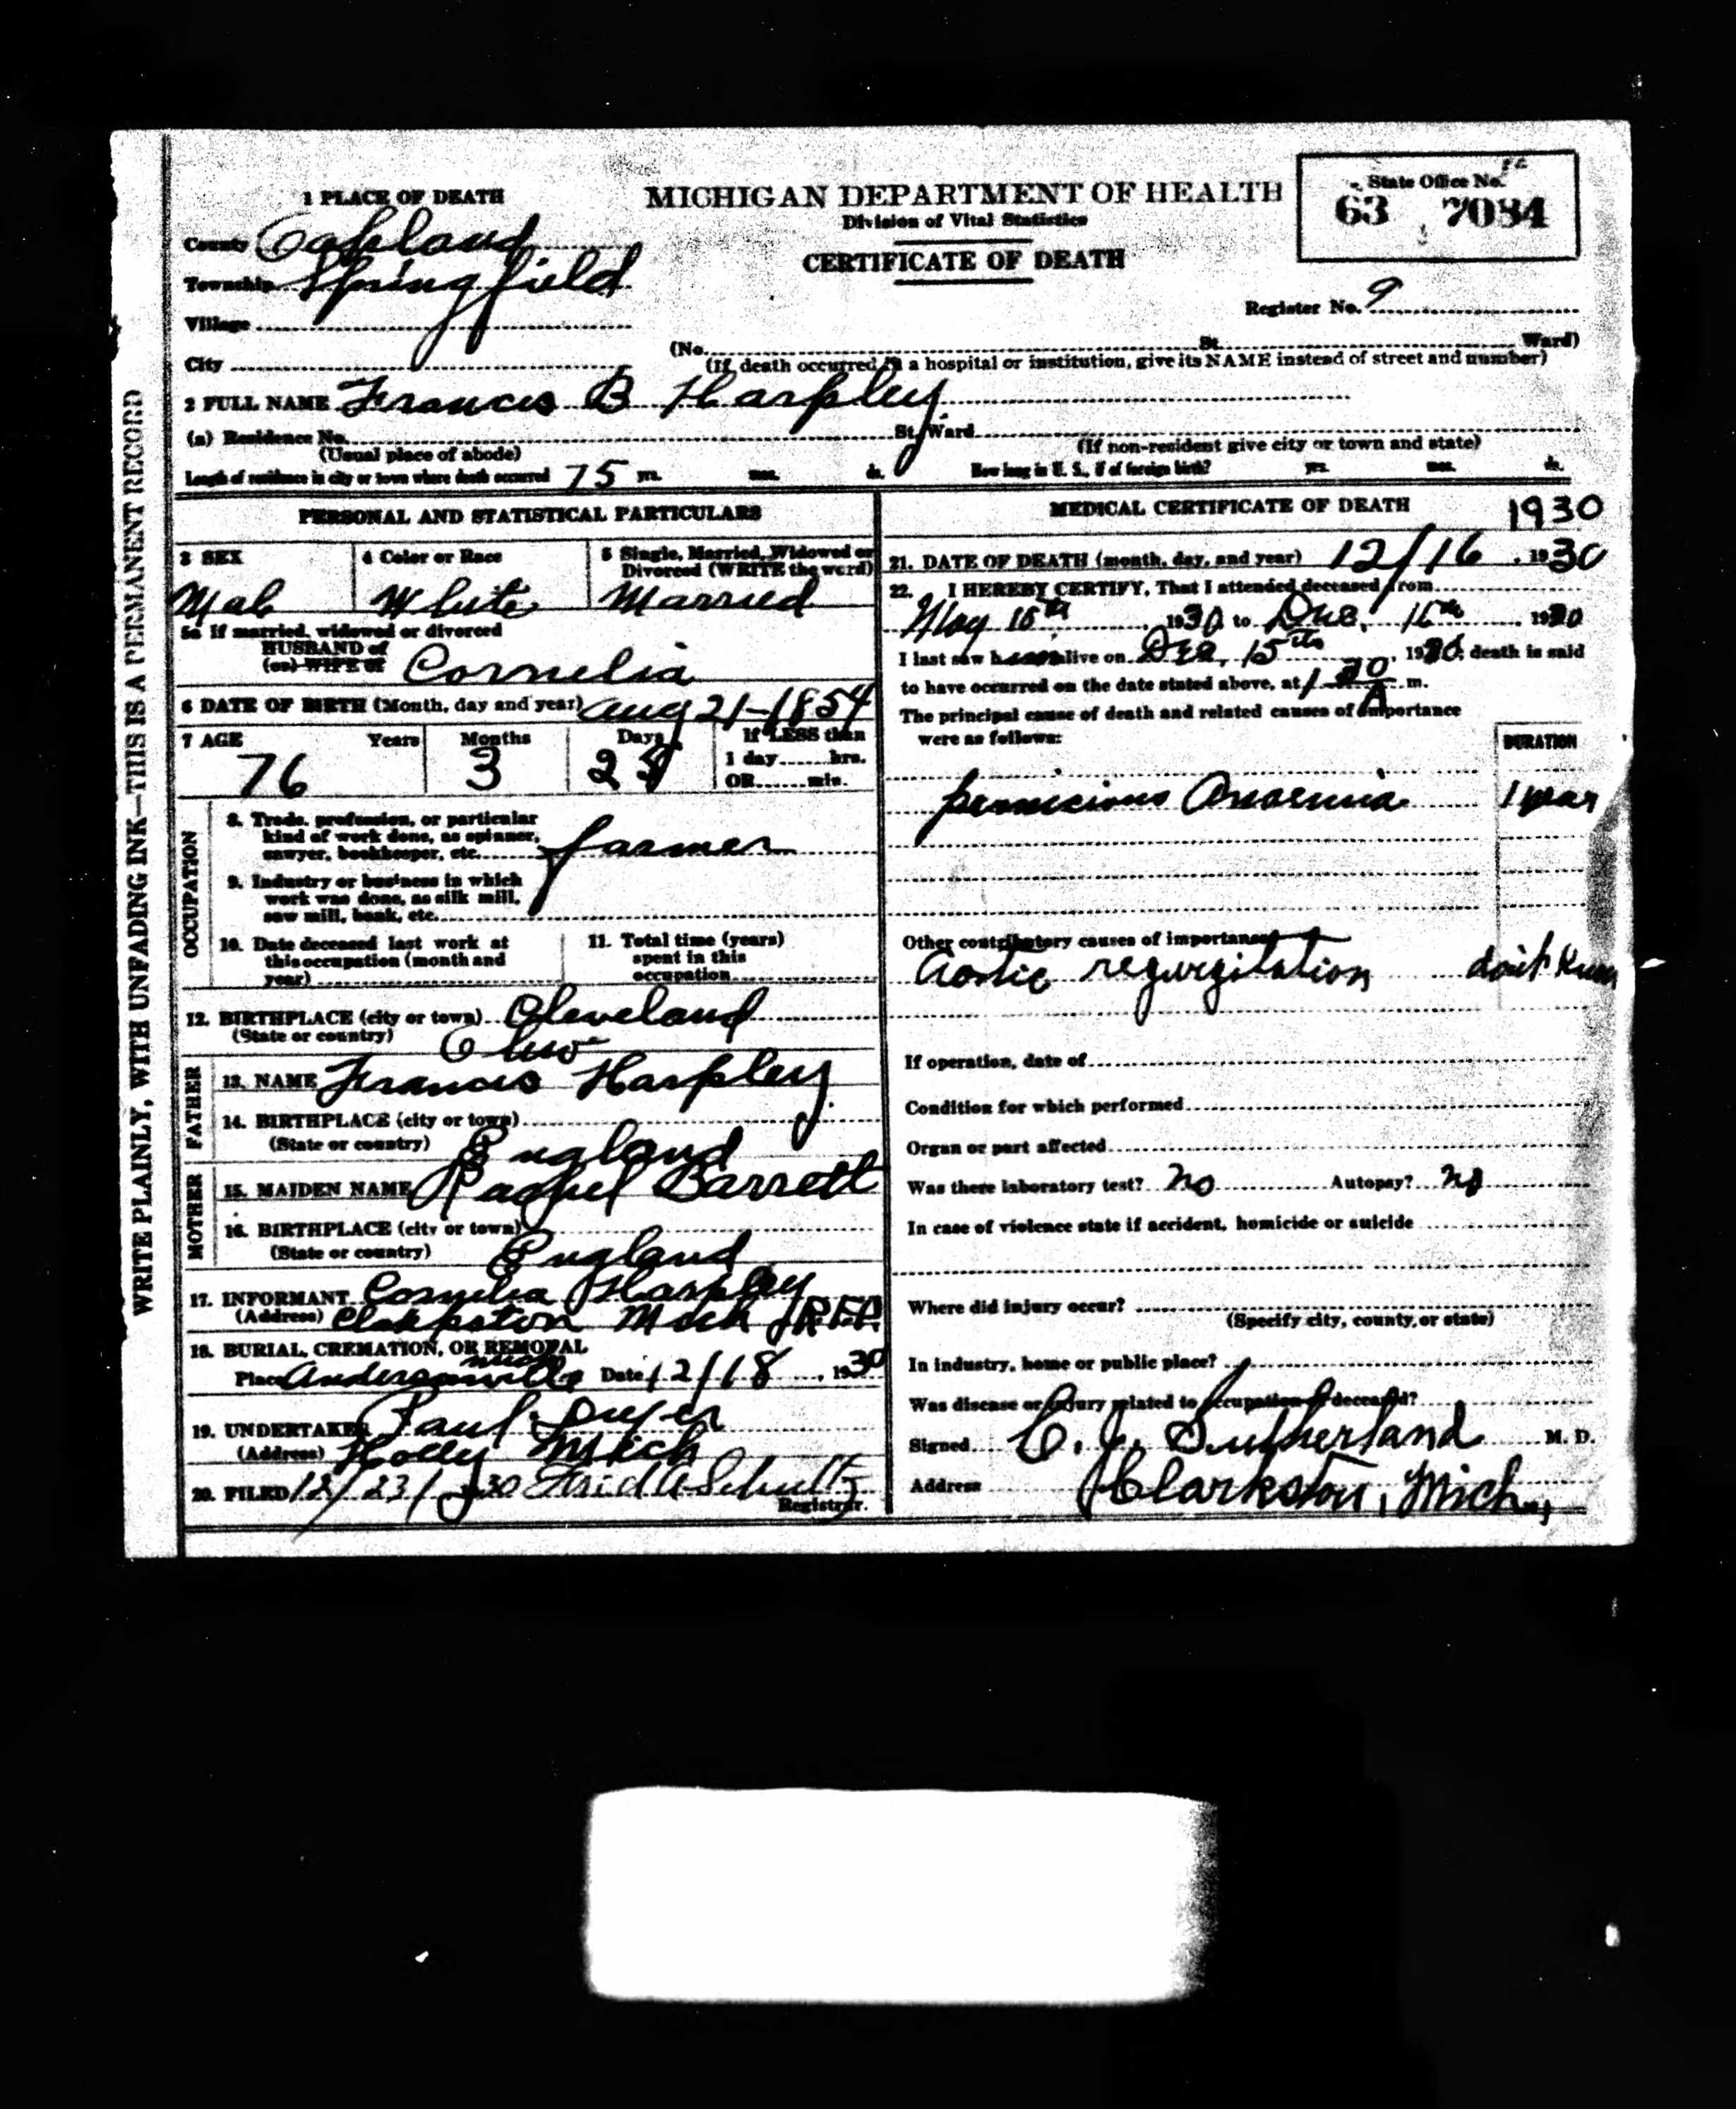 1 PLACE OF DEATH
MICHIGAN DEPARTMENT OF HEALTH
Division of Vital Statistics
CERTIFICATE OF DEATH
State Office No.
63 7084
County Oakland
Township Springfield
Village
City
Register No. 9
(No. St. Ward)
(If death occurred in a hospital or institution, give its NAME instead of street and number)
2 FULL NAME Francis B Harpley
(a) Residence No. St. Ward.
(Usual place of abode) (If non-resident give city or town and state)
Length of residence in city or town where death occurred 75 yrs. mos. ds. How long in U. S., if of foreign birth? yrs. mos. ds.
WRITE PLAINLY, WITH UNFADING INK—THIS IS A PERMANENT RECORD
PERSONAL AND STATISTICAL PARTICULARS
3 SEX 4 Color or Race 5 Single, Married, Widowed or Divorced (WRITE the word)
Male White Married
5a If married, widowed or divorced
HUSBAND of
(or) WIFE of Cornelia
6 DATE OF BIRTH (Month, day and year) Aug 21-1854
7 AGE Years Months Days If LESS than
1 day hrs.
OR min.
76 3 25
OCCUPATION
8. Trade, profession, or particular
kind of work done, as spinner,
sawyer, bookkeeper, etc. farmer
9. Industry or business in which
work was done, as silk mill,
saw mill, bank, etc.
10. Date deceased last work at
this occupation (month and
year)
11. Total time (years)
spent in this
occupation
12. BIRTHPLACE (city or town) Cleveland
(State or country) Ohio
FATHER
13. NAME Francis Harpley
14. BIRTHPLACE (city or town)
(State or country) England
MOTHER
15. MAIDEN NAME Rachel Barrett
16. BIRTHPLACE (city or town)
(State or country) England
17. INFORMANT Cornelia Harpley
(Address) Clarkston Mich R.F.D.
18. BURIAL, CREMATION, OR REMOVAL
Place Andersonville Mich Date 12/18, 1930
19. UNDERTAKER Paul Dryer
(Address) Holly Mich
20. FILED 12/23/ 1930 A Schultz
Registrar.
MEDICAL CERTIFICATE OF DEATH 1930
21. DATE OF DEATH (month, day, and year) 12/16, 1930
22. I HEREBY CERTIFY, That I attended deceased from
May 16th, 1930 to Dec. 16th, 1930
I last saw h alive on Dec. 15th, 1930, death is said
to have occurred on the date stated above, at 1 30 A m.
The principal cause of death and related causes of importance
were as follows:
DURATION
pernicious Anaemia 1 year
Other contributory causes of importance
Aortic regurgitation don't know
If operation, date of
Condition for which performed
Organ or part affected
Was there laboratory test? no Autopsy? no
In case of violence state if accident, homicide or suicide
Where did injury occur?
(Specify city, county, or state)
In industry, home or public place?
Was disease or injury related to occupation of deceased?
Signed C. J. Sutherland M. D.
Address Clarkston, Mich,